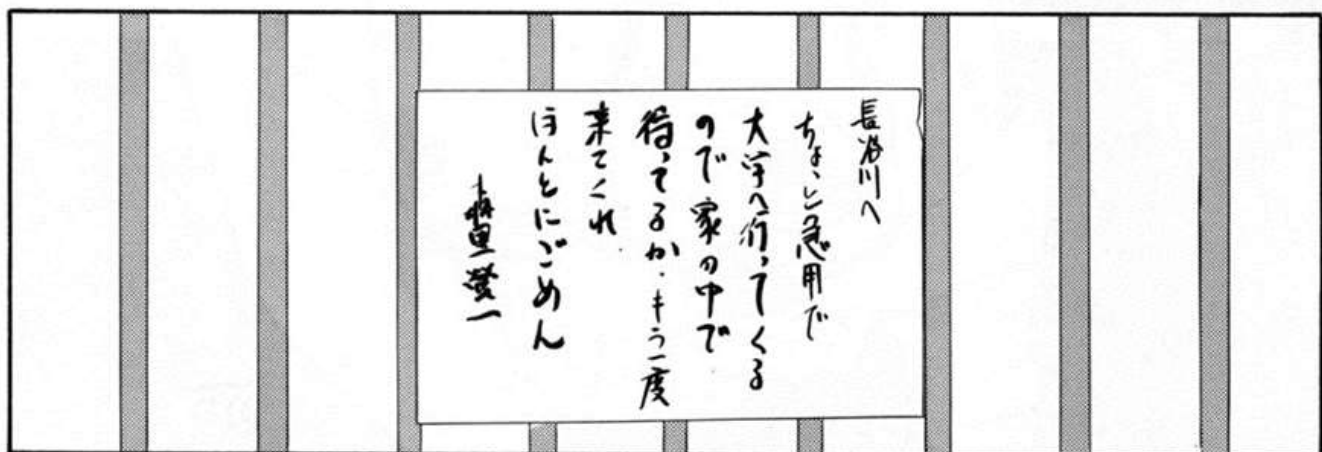 長谷川へ
ちょっと急用で
大学へ行ってくる
ので家の中で
待ってるか、もう一度
来てくれ
ほんとにごめん